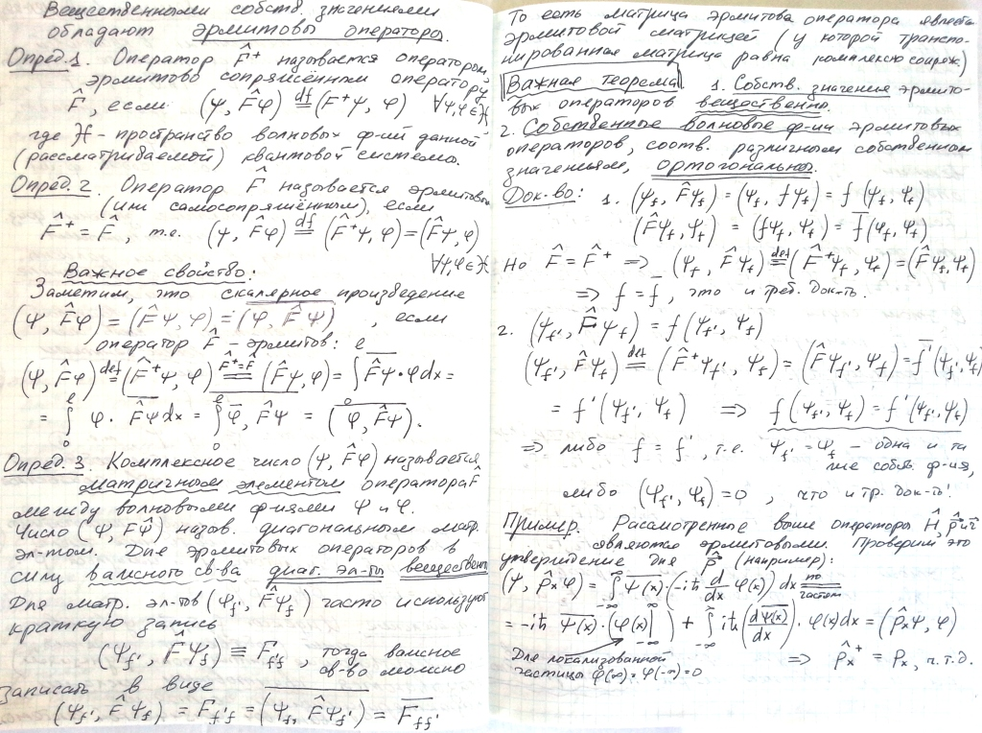 Вещественными собств. значениями
обладают эрмитовы операторы.
Опред.1. Оператор F̂⁺ называется оператором,
эрмитово сопряжённым оператору
F̂, если (ψ, F̂φ) ≝ (F̂⁺ψ, φ) ∀ψ,φ∈ℋ
где ℋ - пространство волновых ф-ий данной
(рассматриваемой) квантовой системы.
Опред.2. Оператор F̂ называется эрмитовым
(или самосопряжённым), если
F̂⁺ = F̂, т.е. (ψ, F̂φ) ≝ (F̂⁺ψ, φ) = (F̂ψ, φ)
∀ψ,φ∈ℋ
Важное свойство:
Заметим, что скалярное произведение
(ψ, F̂φ) = (F̂ψ, φ) = \overline{(φ, F̂ψ)}, если
оператор F̂ - эрмитов:
(ψ, F̂φ) ≝ (F̂⁺ψ, φ) \overset{F̂⁺=F̂}{=} (F̂ψ, φ) = ∫₀^ℓ \overline{F̂ψ}·φdx =
= ∫₀^ℓ φ·\overline{F̂ψ}dx = \overline{∫₀^ℓ \overline{φ}, F̂ψ} = \overline{(φ, F̂ψ)}.
Опред.3. Комплексное число (ψ, F̂φ) называется
матричным элементом оператора F̂
между волновыми ф-иями ψ и φ.
Число (ψ, F̂ψ) назыв. диагональным матр.
эл-том. Для эрмитовых операторов в
силу важного св-ва диаг. эл-ты вещественны
Для матр. эл-тов (ψ_{f'}, F̂ψ_f) часто используют
краткую запись
(ψ_{f'}, F̂ψ_f) ≡ F_{f'f}, тогда важное
св-во можно
записать в виде
(ψ_{f'}, F̂ψ_f) = F_{f'f} = \overline{(ψ_f, F̂ψ_{f'})} = \overline{F_{ff'}}
То есть матрица эрмитова оператора является
эрмитовой матрицей (у которой транспо-
нированная матрица равна комплексно сопряж.)
Важная теорема 1. Собств. значения эрмито-
вых операторов вещественны.
2. Собственные волновые ф-ии эрмитовых
операторов, соотв. различным собственным
значениям, ортогональны.
Док-во: 1. (ψ_f, F̂ψ_f) = (ψ_f, fψ_f) = f(ψ_f, ψ_f)
(F̂ψ_f, ψ_f) = (fψ_f, ψ_f) = \overline{f}(ψ_f, ψ_f)
Но F̂ = F̂⁺ ⟹ (ψ_f, F̂ψ_f) ≝ (F̂⁺ψ_f, ψ_f) = (F̂ψ_f, ψ_f)
⟹ f = \overline{f}, что и треб. док-ть.
2. (ψ_{f'}, F̂ψ_f) = f(ψ_{f'}, ψ_f)
(ψ_{f'}, F̂ψ_f) ≝ (F̂⁺ψ_{f'}, ψ_f) = (F̂ψ_{f'}, ψ_f) = \overline{f'}(ψ_{f'}, ψ_f)
= f'(ψ_{f'}, ψ_f) ⟹ f(ψ_{f'}, ψ_f) = f'(ψ_{f'}, ψ_f)
⟹ либо f = f', т.е. ψ_{f'} = ψ_f - одна и та
же собств. ф-ия,
либо (ψ_{f'}, ψ_f) = 0, что и тр. док-ть!
Пример. Расмотренные выше операторы Ĥ, p̂ и r̂
являются эрмитовыми. Проверим это
утверждение для p̂ (например):
(ψ, p̂ₓφ) = ∫_{-∞}^{∞} \overline{ψ(x)}·(-iħ d/dx φ(x)) dx \overset{по}{\underset{частям}{=}}
= -iħ \overline{ψ(x)}·φ(x)|_{-∞}^{∞} + ∫_{-∞}^{∞} iħ (\overline{dψ(x)/dx})·φ(x)dx = (p̂ₓψ, φ)
Для локализованной
частицы φ(∞)=φ(-∞)=0
⟹ p̂ₓ⁺ = p̂ₓ, ч.т.д.